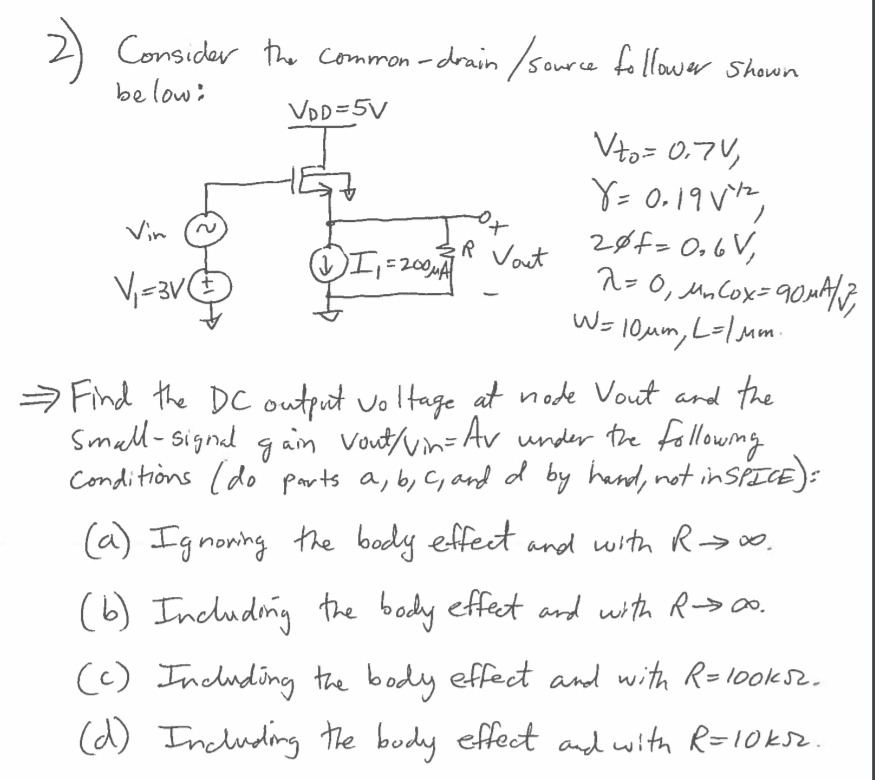 2) Consider the common-drain/source follower shown
below:
VDD=5V
Vto= 0.7V,
γ= 0.19 V^1/2,
Vin
~
+
I1=200μA
R
Vout
2øf= 0.6V,
V1=3V
+
-
-
λ= 0, μnCox=90μA/V²,
W=10μm, L=1μm.
⇒ Find the DC output voltage at node Vout and the
small-signal gain Vout/Vin=Av under the following
conditions (do parts a, b, c, and d by hand, not in SPICE):
(a) Ignoring the body effect and with R→∞.
(b) Including the body effect and with R→∞.
(c) Including the body effect and with R=100kΩ.
(d) Including the body effect and with R=10kΩ.